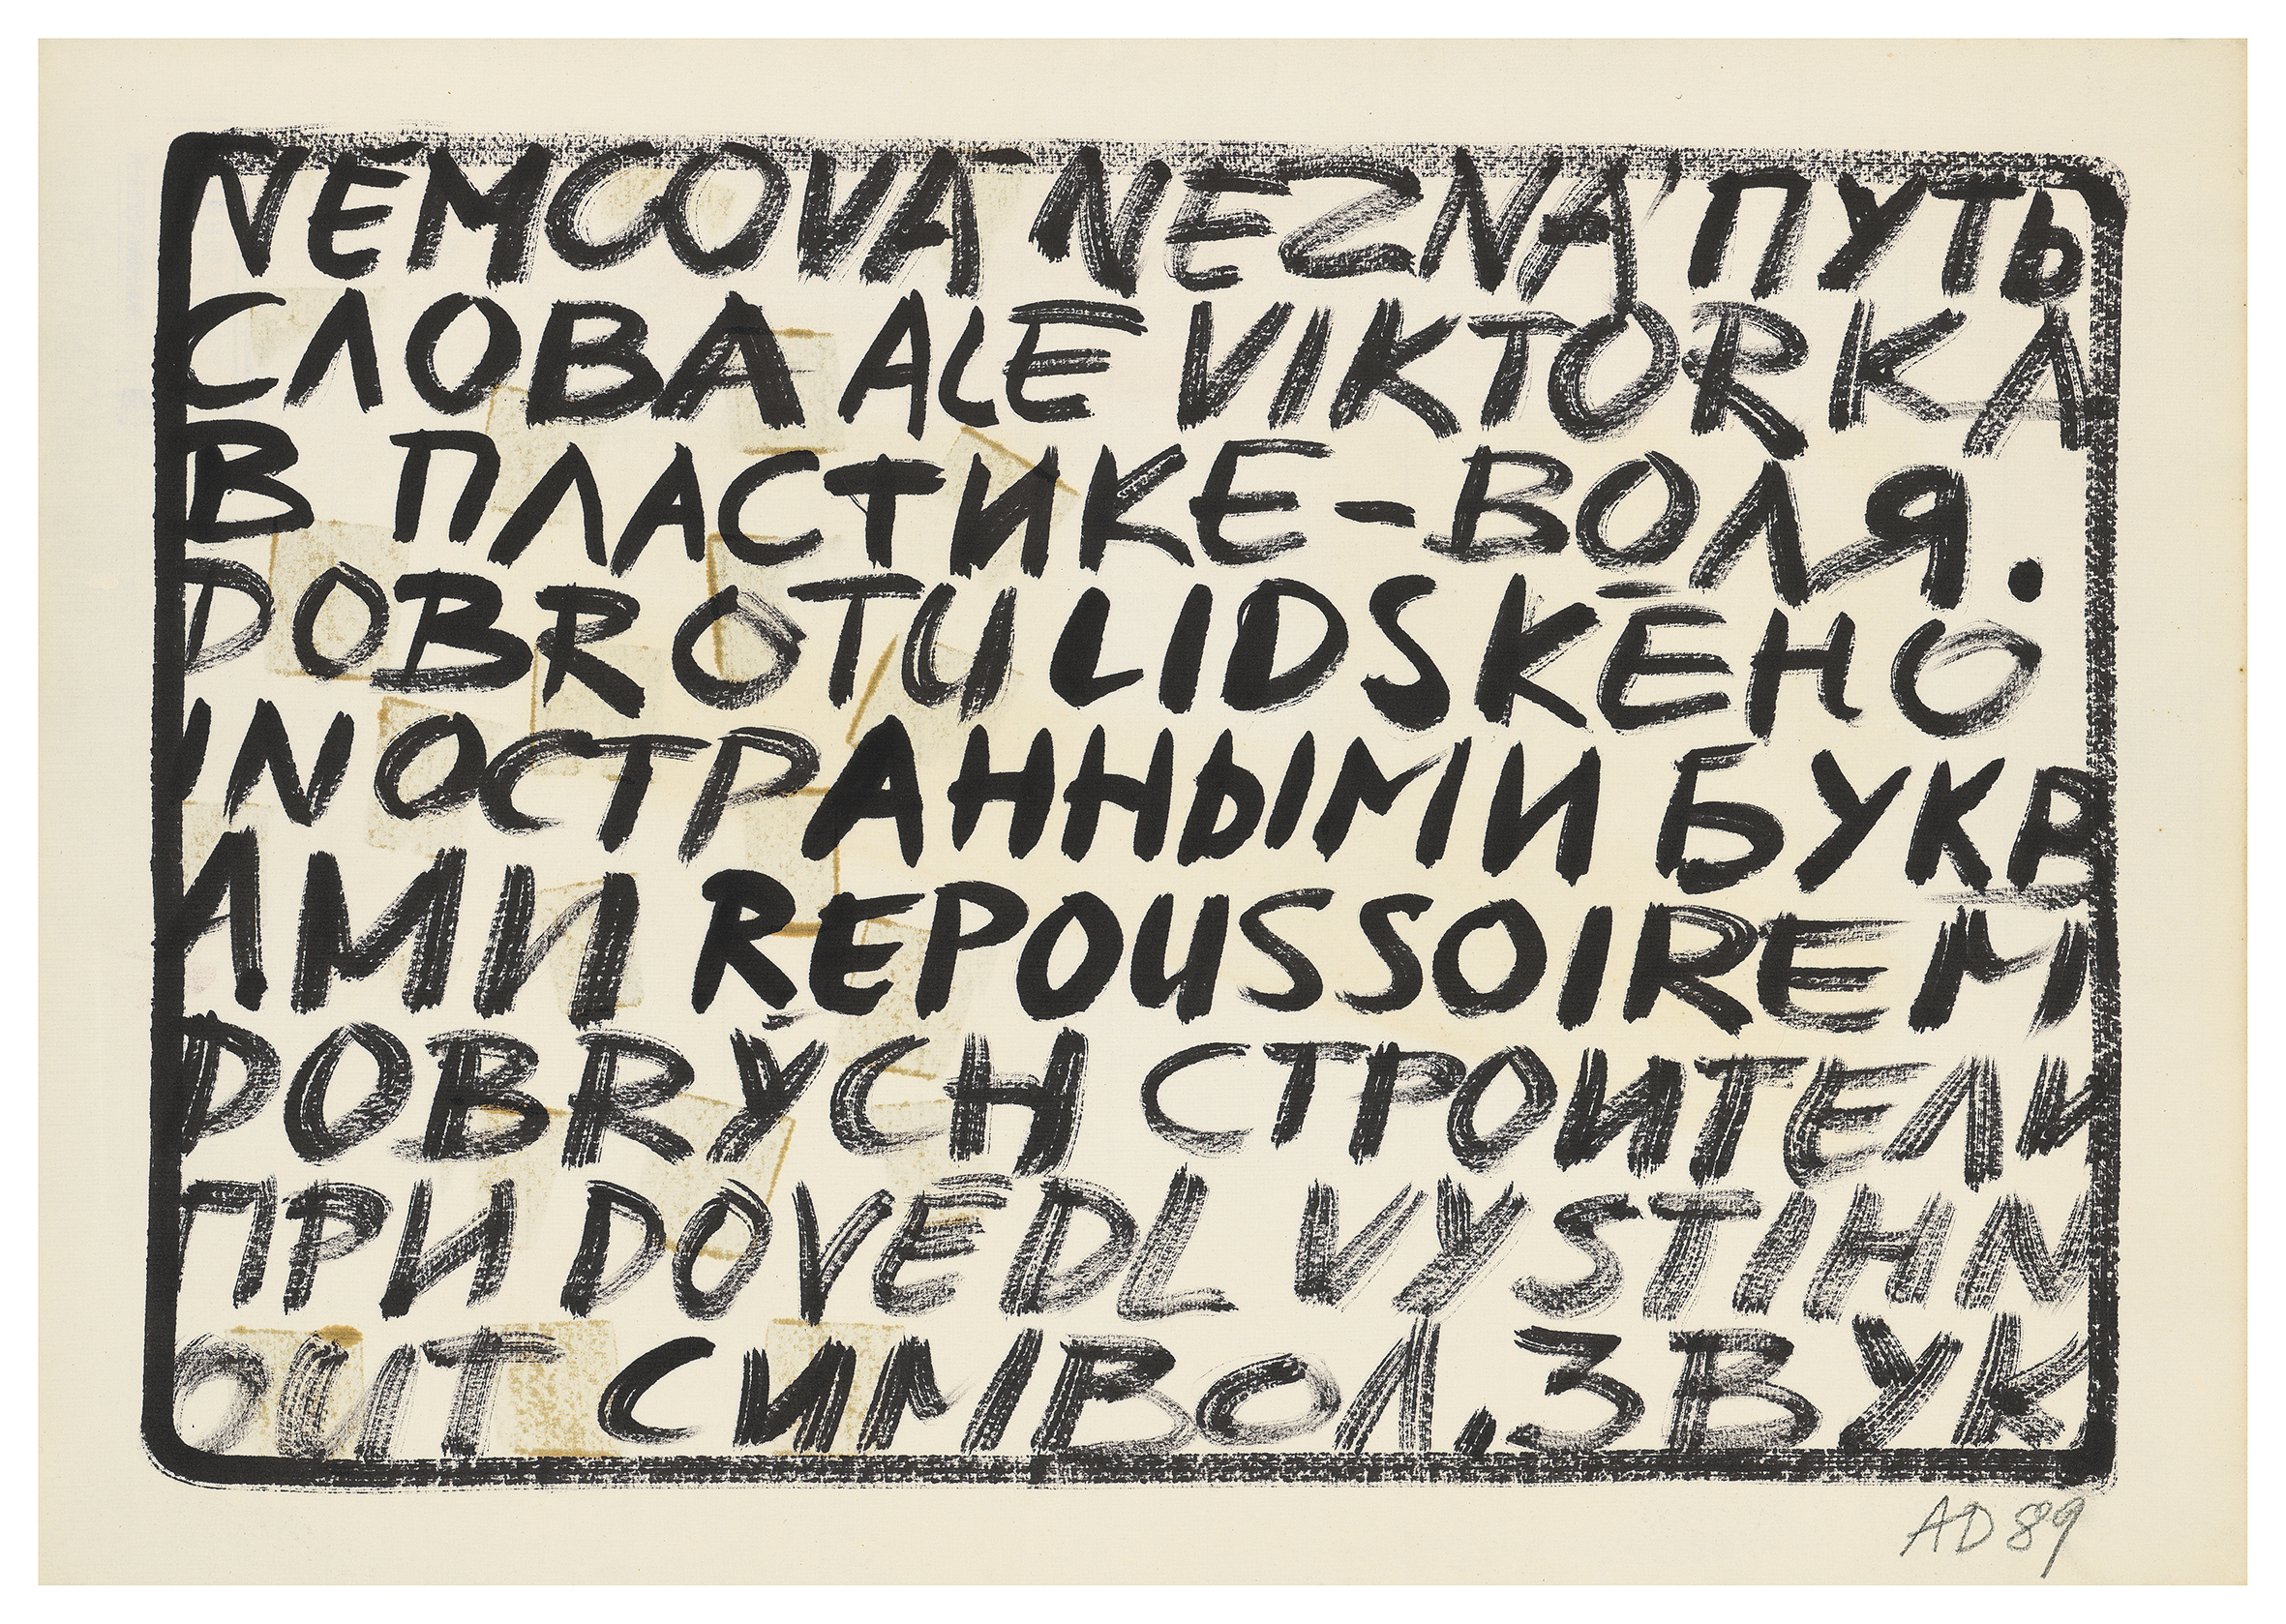 NEMCOVÁ NEZNÁ ПУТЬ
СЛОВА ALE VIKTORKA
В ПЛАСТИКЕ-ВОЛЯ.
DOBROTU LIDSKÉHO
INОСТРАННЫМИ БУКВ
АМИ REPOUSSOIREM
DOBRÝCH СТРОИТЕЛИ
ПРИ DOVEDL VYSTIHN
OUT СИМВОЛ.ЗВУК
AD 89